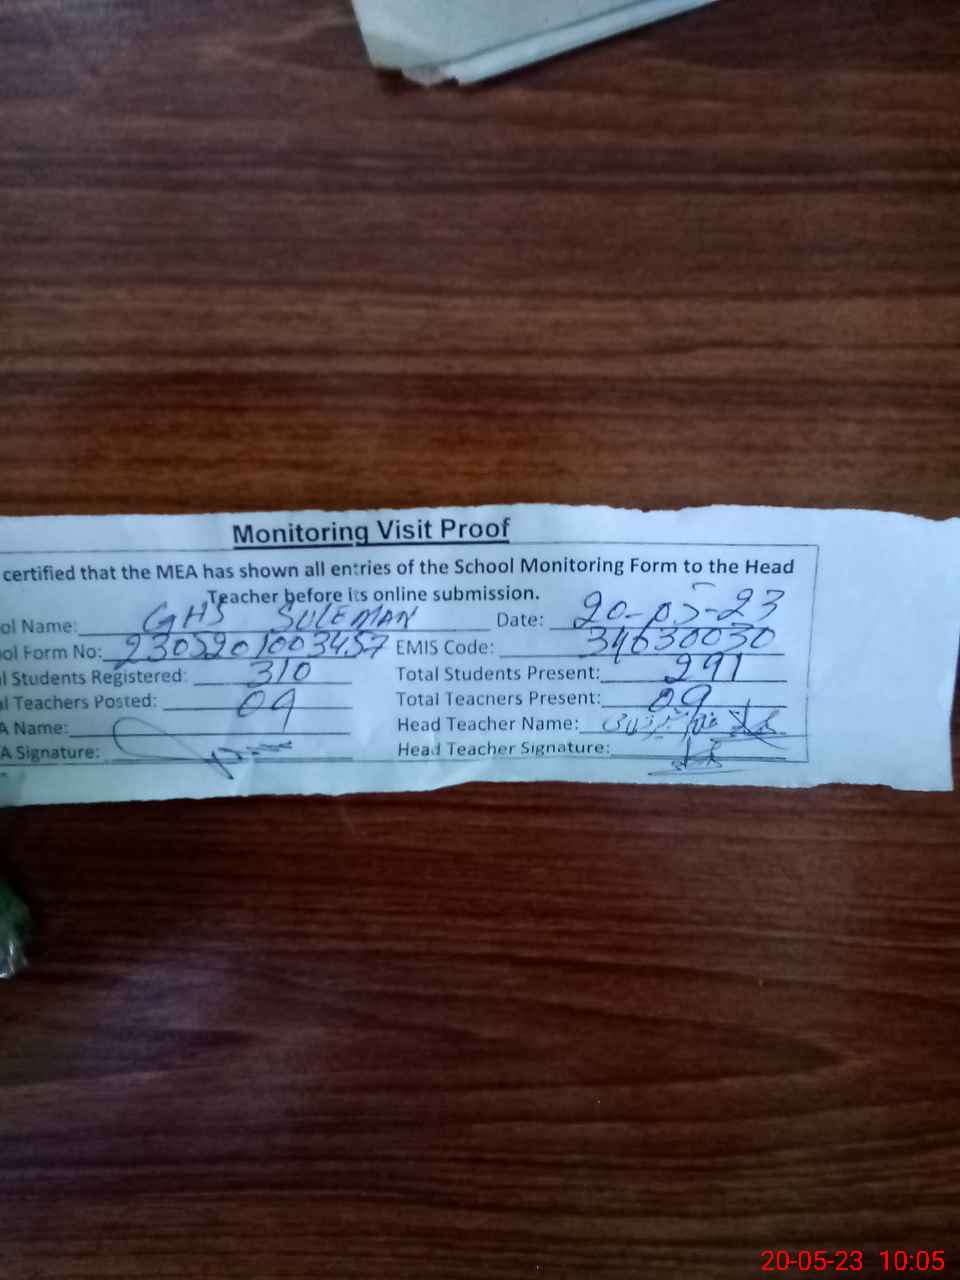 Monitoring Visit Proof
certified that the MEA has shown all entries of the School Monitoring Form to the Head
Teacher before its online submission.
ol Name: GHS SULEMAN Date: 20-05-23
ol Form No: 2305201003457 EMIS Code: 34630030
l Students Registered: 310 Total Students Present: 291
al Teachers Posted: 09 Total Teachers Present: 09
A Name: Head Teacher Name:
A Signature: Head Teacher Signature:
20-05-23 10:05